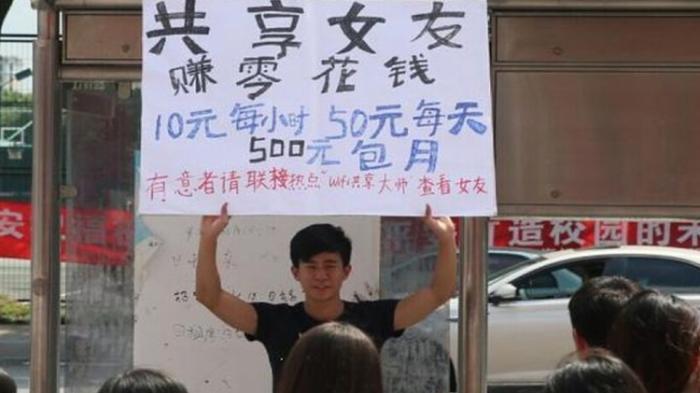 共享女友
赚零花钱
10元每小时 50元每天
500元包月
有意者请联接热点"Wifi共享大师"查看女友
造校园的